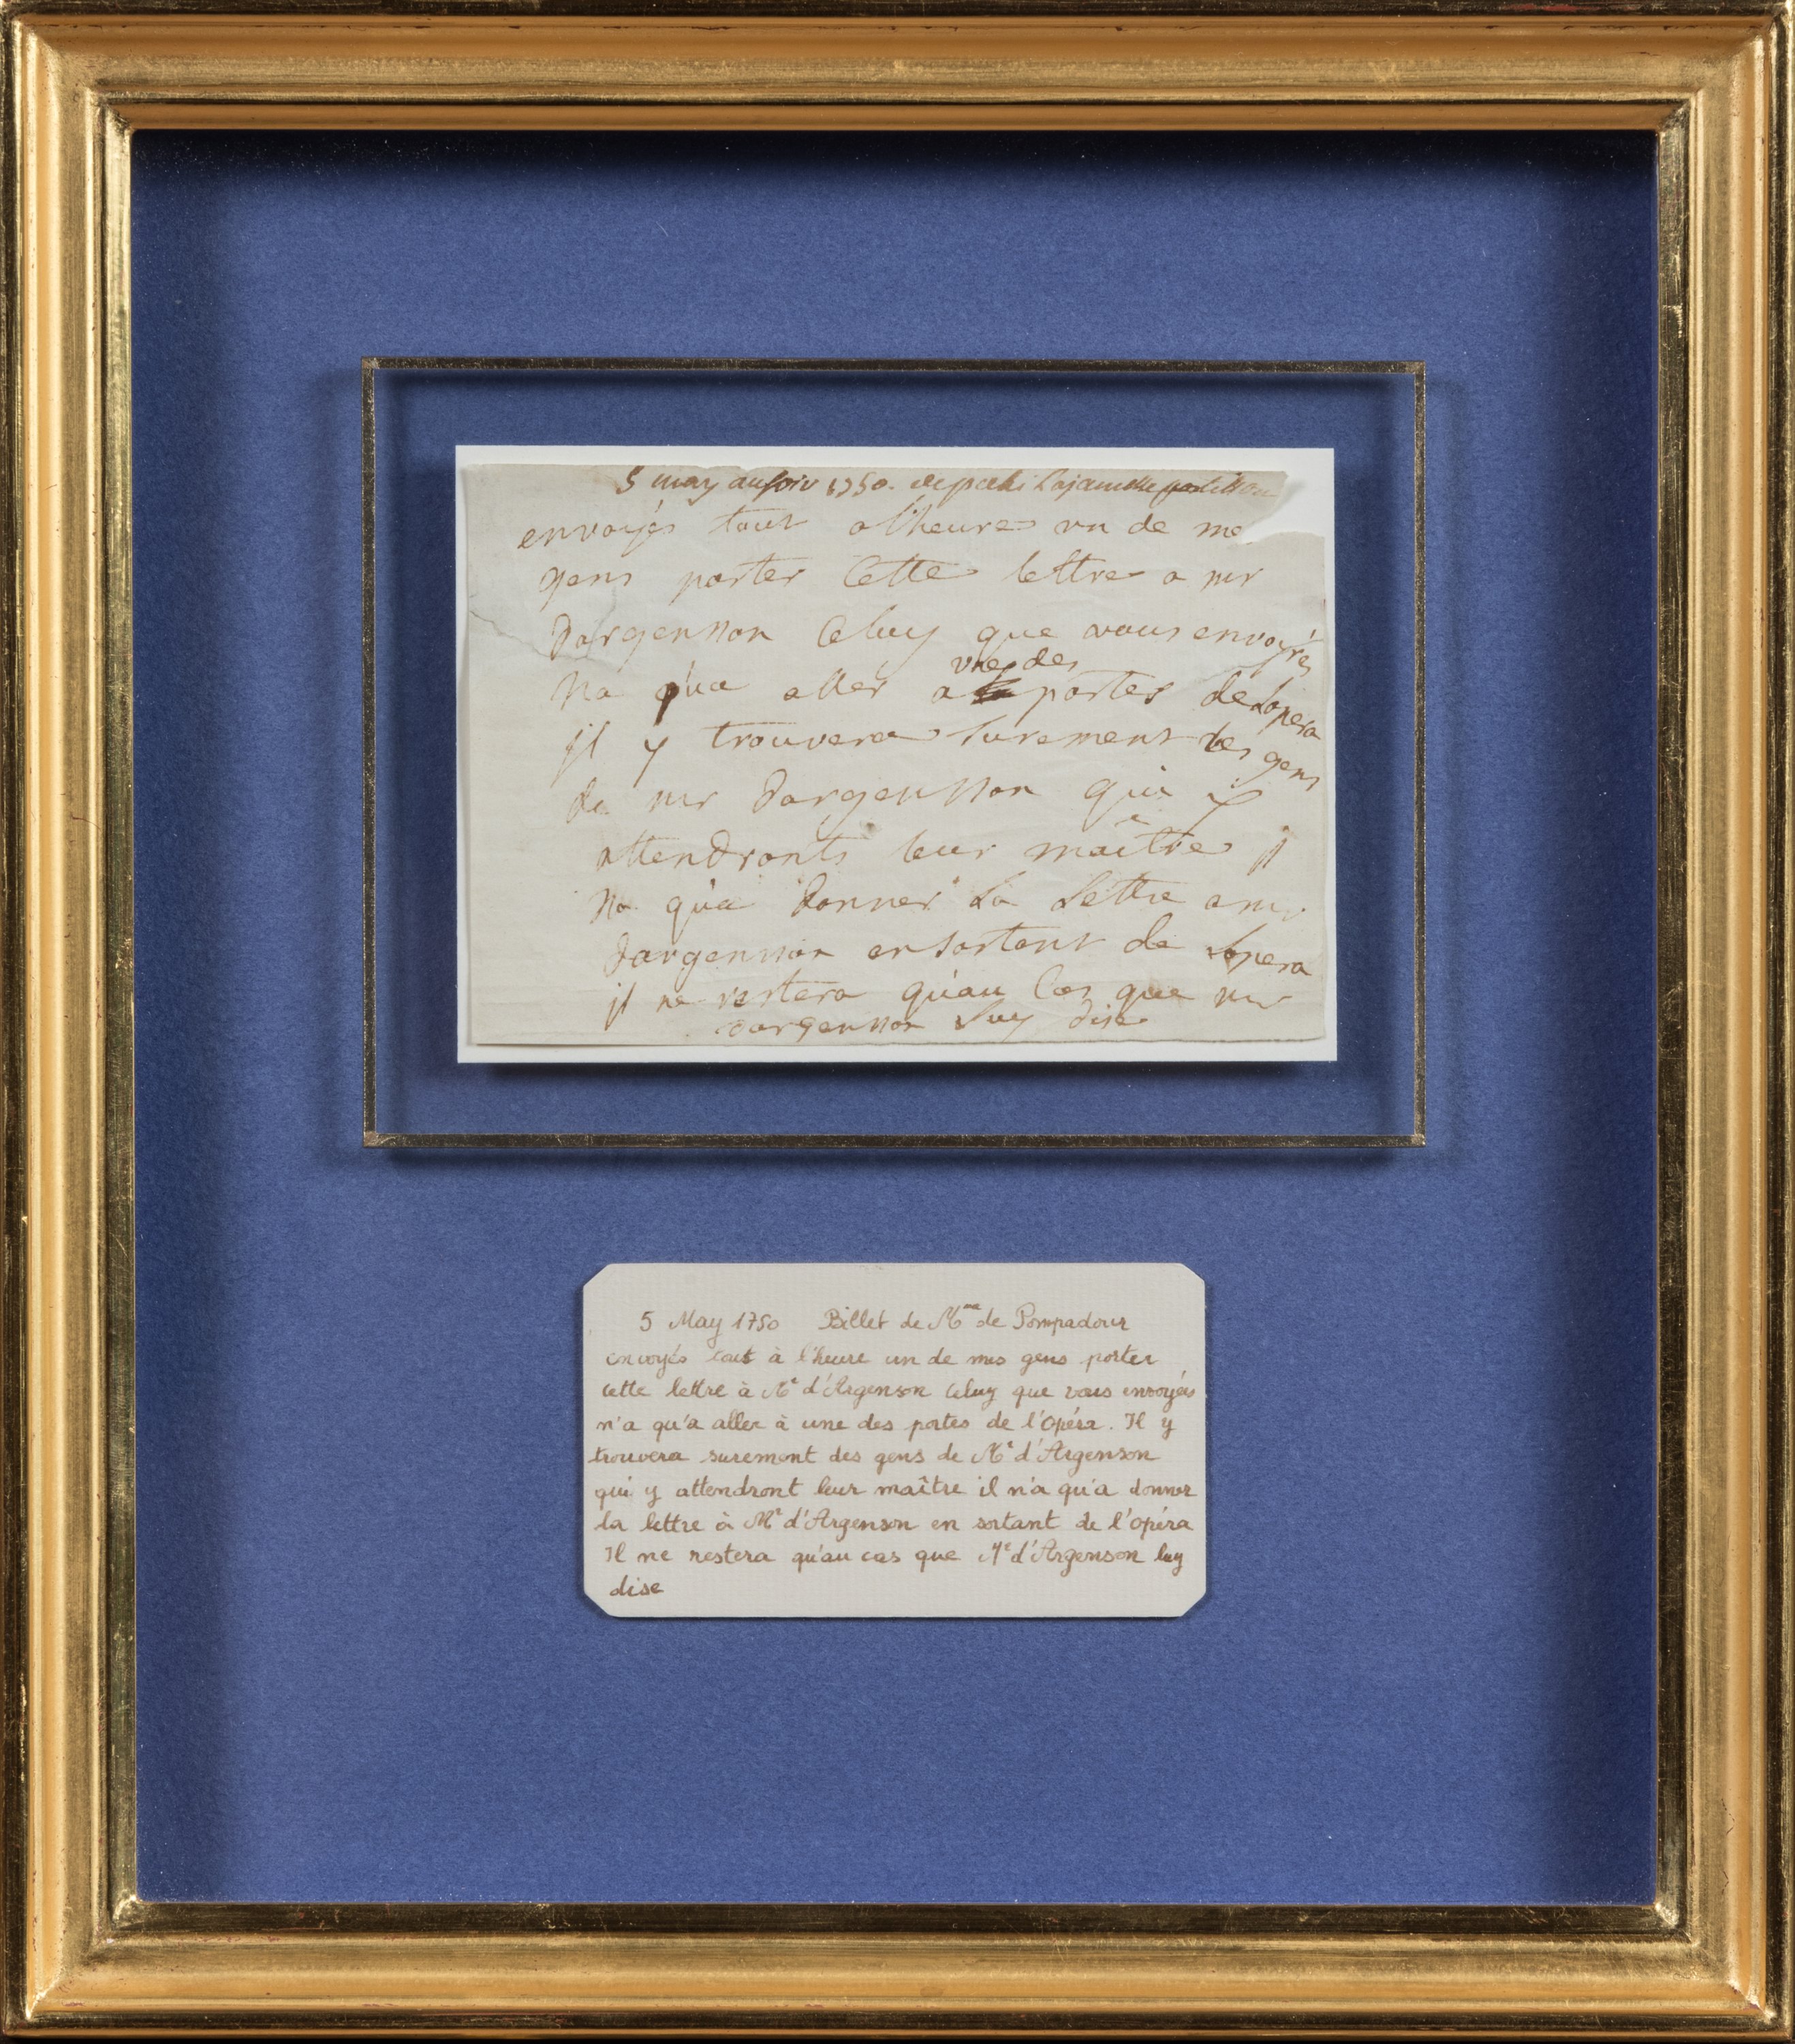 5 may au soir 1750. depeché Lajeunesse postillon
envoyés tout alheure vn de me
gens porter Cette lettre a mr
Dargenson Celuy que vous envoyrés
Na qua aller a vne des portes de Lopera
jl y trouvera Surement des gens
de mr Dargenson qui y
attendronts leur maître jl
Na qua donner La Lettre a mr
Dargenson en Sortent de Lopera
jl ne restera quau Cas que mr
dargenson Luy dise
5 May 1750 Billet de Mme de Pompadour
envoyés tout à l'heure un de mes gens porter
cette lettre à Mr d'Argenson Celuy que vous envoyés
n'a qu'a aller à une des portes de l'Opéra. Il y
trouvera surement des gens de Mr d'Argenson
qui y attendront leur maître il n'a qu'a donner
la lettre à Mr d'Argenson en sortant de l'opéra
Il ne restera qu'au cas que Mr d'Argenson luy
dise